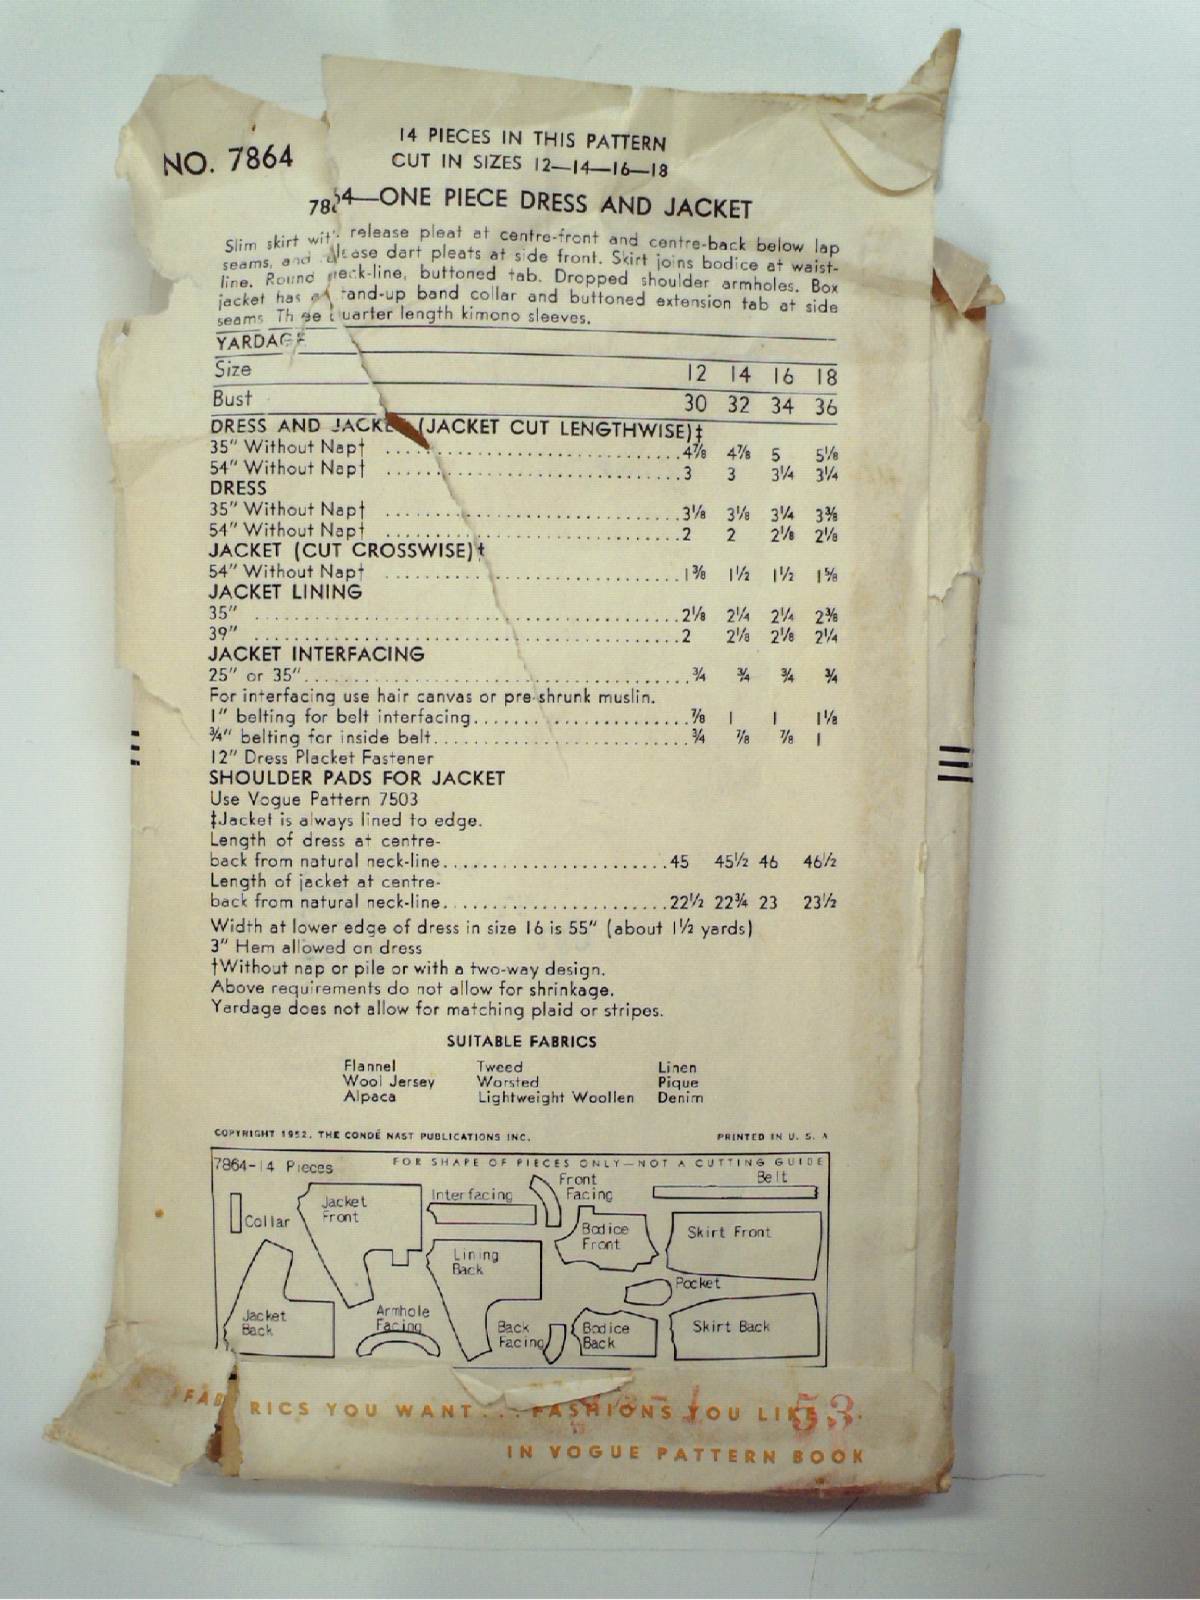 NO. 7864
14 PIECES IN THIS PATTERN
CUT IN SIZES 12—14—16—18
7864—ONE PIECE DRESS AND JACKET
Slim skirt with release pleat at centre-front and centre-back below lap
seams, and release dart pleats at side front. Skirt joins bodice at waist-
line. Round neck-line, buttoned tab. Dropped shoulder armholes. Box
jacket has a stand-up band collar and buttoned extension tab at side
seams. Three quarter length kimono sleeves.
YARDAGE
Size 12 14 16 18
Bust 30 32 34 36
DRESS AND JACKET (JACKET CUT LENGTHWISE)‡
35" Without Nap† 4⅞ 4⅞ 5 5⅛
54" Without Nap† 3 3 3¼ 3¼
DRESS
35" Without Nap† 3⅛ 3⅛ 3¼ 3⅜
54" Without Nap† 2 2 2⅛ 2⅛
JACKET (CUT CROSSWISE)‡
54" Without Nap† 1⅜ 1½ 1½ 1⅝
JACKET LINING
35" 2⅛ 2¼ 2¼ 2⅜
39" 2 2⅛ 2⅛ 2¼
JACKET INTERFACING
25" or 35" ¾ ¾ ¾ ¾
For interfacing use hair canvas or pre-shrunk muslin.
1" belting for belt interfacing ⅞ 1 1 1⅛
¾" belting for inside belt ¾ ⅞ ⅞ 1
12" Dress Placket Fastener
SHOULDER PADS FOR JACKET
Use Vogue Pattern 7503
‡Jacket is always lined to edge.
Length of dress at centre-
back from natural neck-line 45 45½ 46 46½
Length of jacket at centre-
back from natural neck-line 22½ 22¾ 23 23½
Width at lower edge of dress in size 16 is 55" (about 1½ yards)
3" Hem allowed on dress
†Without nap or pile or with a two-way design.
Above requirements do not allow for shrinkage.
Yardage does not allow for matching plaid or stripes.
SUITABLE FABRICS
Flannel Tweed Linen
Wool Jersey Worsted Pique
Alpaca Lightweight Woollen Denim
COPYRIGHT 1952, THE CONDÉ NAST PUBLICATIONS INC. PRINTED IN U. S. A
7864-14 Pieces FOR SHAPE OF PIECES ONLY—NOT A CUTTING GUIDE
Collar
Jacket
Front
Interfacing
Front
Facing
Belt
Bodice
Front
Skirt Front
Lining
Back
Pocket
Jacket
Back
Armhole
Facing
Back
Facing
Bodice
Back
Skirt Back
FABRICS YOU WANT... FASHIONS YOU LIKE...
53
IN VOGUE PATTERN BOOK